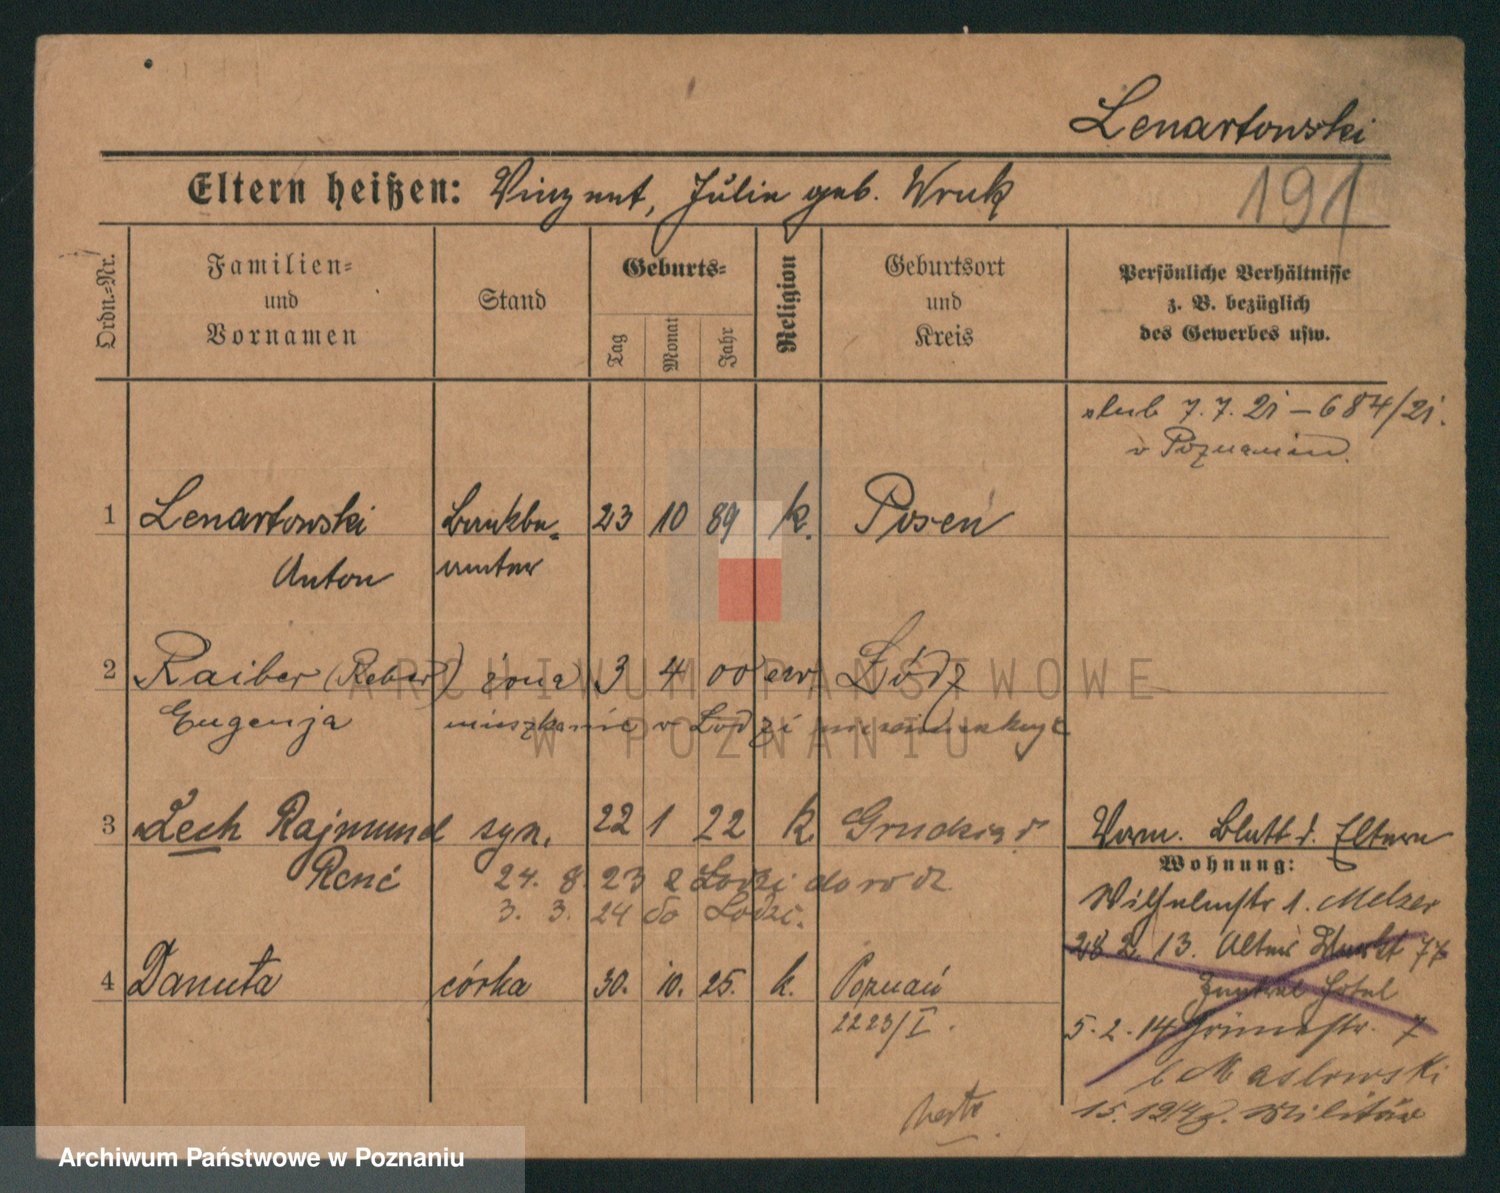 Lenartowski
Eltern heißen: Vinzent, Julie geb. Wruk
191
Ordn.-Nr.
Familien-
und
Vornamen
Stand
Geburts-
Tag
Monat
Jahr
Religion
Geburtsort
und
Kreis
Persönliche Verhältnisse
z. B. bezüglich
des Gewerbes usw.
slub 7.7.21 – 684/21.
w Poznaniu.
1 Lenartowski Bankbe- 23 10 89 k. Posen
Anton amter
2 Raiber (Reber) żona 3 4 00 ew Łódz
Eugenja mieszkanie w Łodzi
3 Lech Rajmund syn. 22 1 22 k. Grudziądz
René
24. 8. 23 z Łodzi
3. 3. 24 do Łodzi.
Vorm. Blatt d. Eltern
Wohnung:
Wilhelmstr 1. Melzer
28 2. 13. Alter Markt 77
Zentral Hotel
5. 2. 14 7
b Maslowski
z. Militär
4 Danuta córka 30. 10. 25. k. Poznań
2223/I.
ARCHIWUM PAŃSTWOWE
W POZNANIU
Archiwum Państwowe w Poznaniu